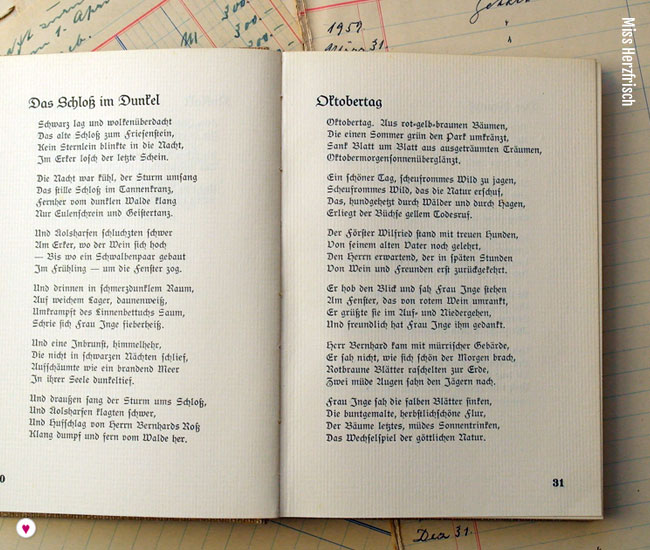 1. April
300.
300.
300.
1957.
31.
Miss Herzfrisch
Das Schloß im Dunkel
Schwarz lag und wolkenüberdacht
Das alte Schloß zum Friesenstein,
Kein Sternlein blinkte in die Nacht,
Im Erker losch der letzte Schein.
Die Nacht war kühl, der Sturm umsang
Das stille Schloß im Tannenkranz,
Fernher vom dunklen Walde klang
Nur Eulenschrein und Geistertanz.
Und Aolsharfen schluchzten schwer
Am Erker, wo der Wein sich hoch
— Bis wo ein Schwalbenpaar gebaut
Im Frühling — um die Fenster zog.
Und drinnen in schmerzdunklem Raum,
Auf weichem Lager, daunenweiß,
Umkrampft des Linnenbettuchs Saum,
Schrie sich Frau Inge fieberheiß.
Und eine Inbrunst, himmelhehr,
Die nicht in schwarzen Nächten schlief,
Aufschäumte wie ein brandend Meer
In ihrer Seele dunkeltief.
Und draußen sang der Sturm ums Schloß,
Und Aolsharfen klagten schwer,
Und Hufschlag von Herrn Bernhards Roß
Klang dumpf und fern vom Walde her.
0
Oktobertag
Oktobertag. Aus rot-gelb-braunen Bäumen,
Die einen Sommer grün den Park umkränzt,
Sank Blatt um Blatt aus ausgeträumten Träumen,
Oktobermorgensonnenüberglänzt.
Ein schöner Tag, scheufrommes Wild zu jagen,
Scheufrommes Wild, das die Natur erschuf,
Das, hundgehetzt durch Wälder und durch Hagen,
Erliegt der Büchse gellem Todesruf.
Der Förster Wilfried stand mit treuen Hunden,
Von seinem alten Vater noch gelehrt,
Den Herrn erwartend, der in späten Stunden
Von Wein und Freunden erst zurückgekehrt.
Er hob den Blick und sah Frau Inge stehen
Am Fenster, das von rotem Wein umrankt,
Er grüßte sie im Auf- und Niedergehen,
Und freundlich hat Frau Inge ihm gedankt.
Herr Bernhard kam mit mürrischer Gebärde,
Er sah nicht, wie sich schön der Morgen brach,
Rotbraune Blätter raschelten zur Erde,
Zwei müde Augen sahn den Jägern nach.
Frau Inge sah die falben Blätter sinken,
Die buntgemalte, herbstlichschöne Flur,
Der Bäume letztes, müdes Sonnentrinken,
Das Wechselspiel der göttlichen Natur.
31
31.